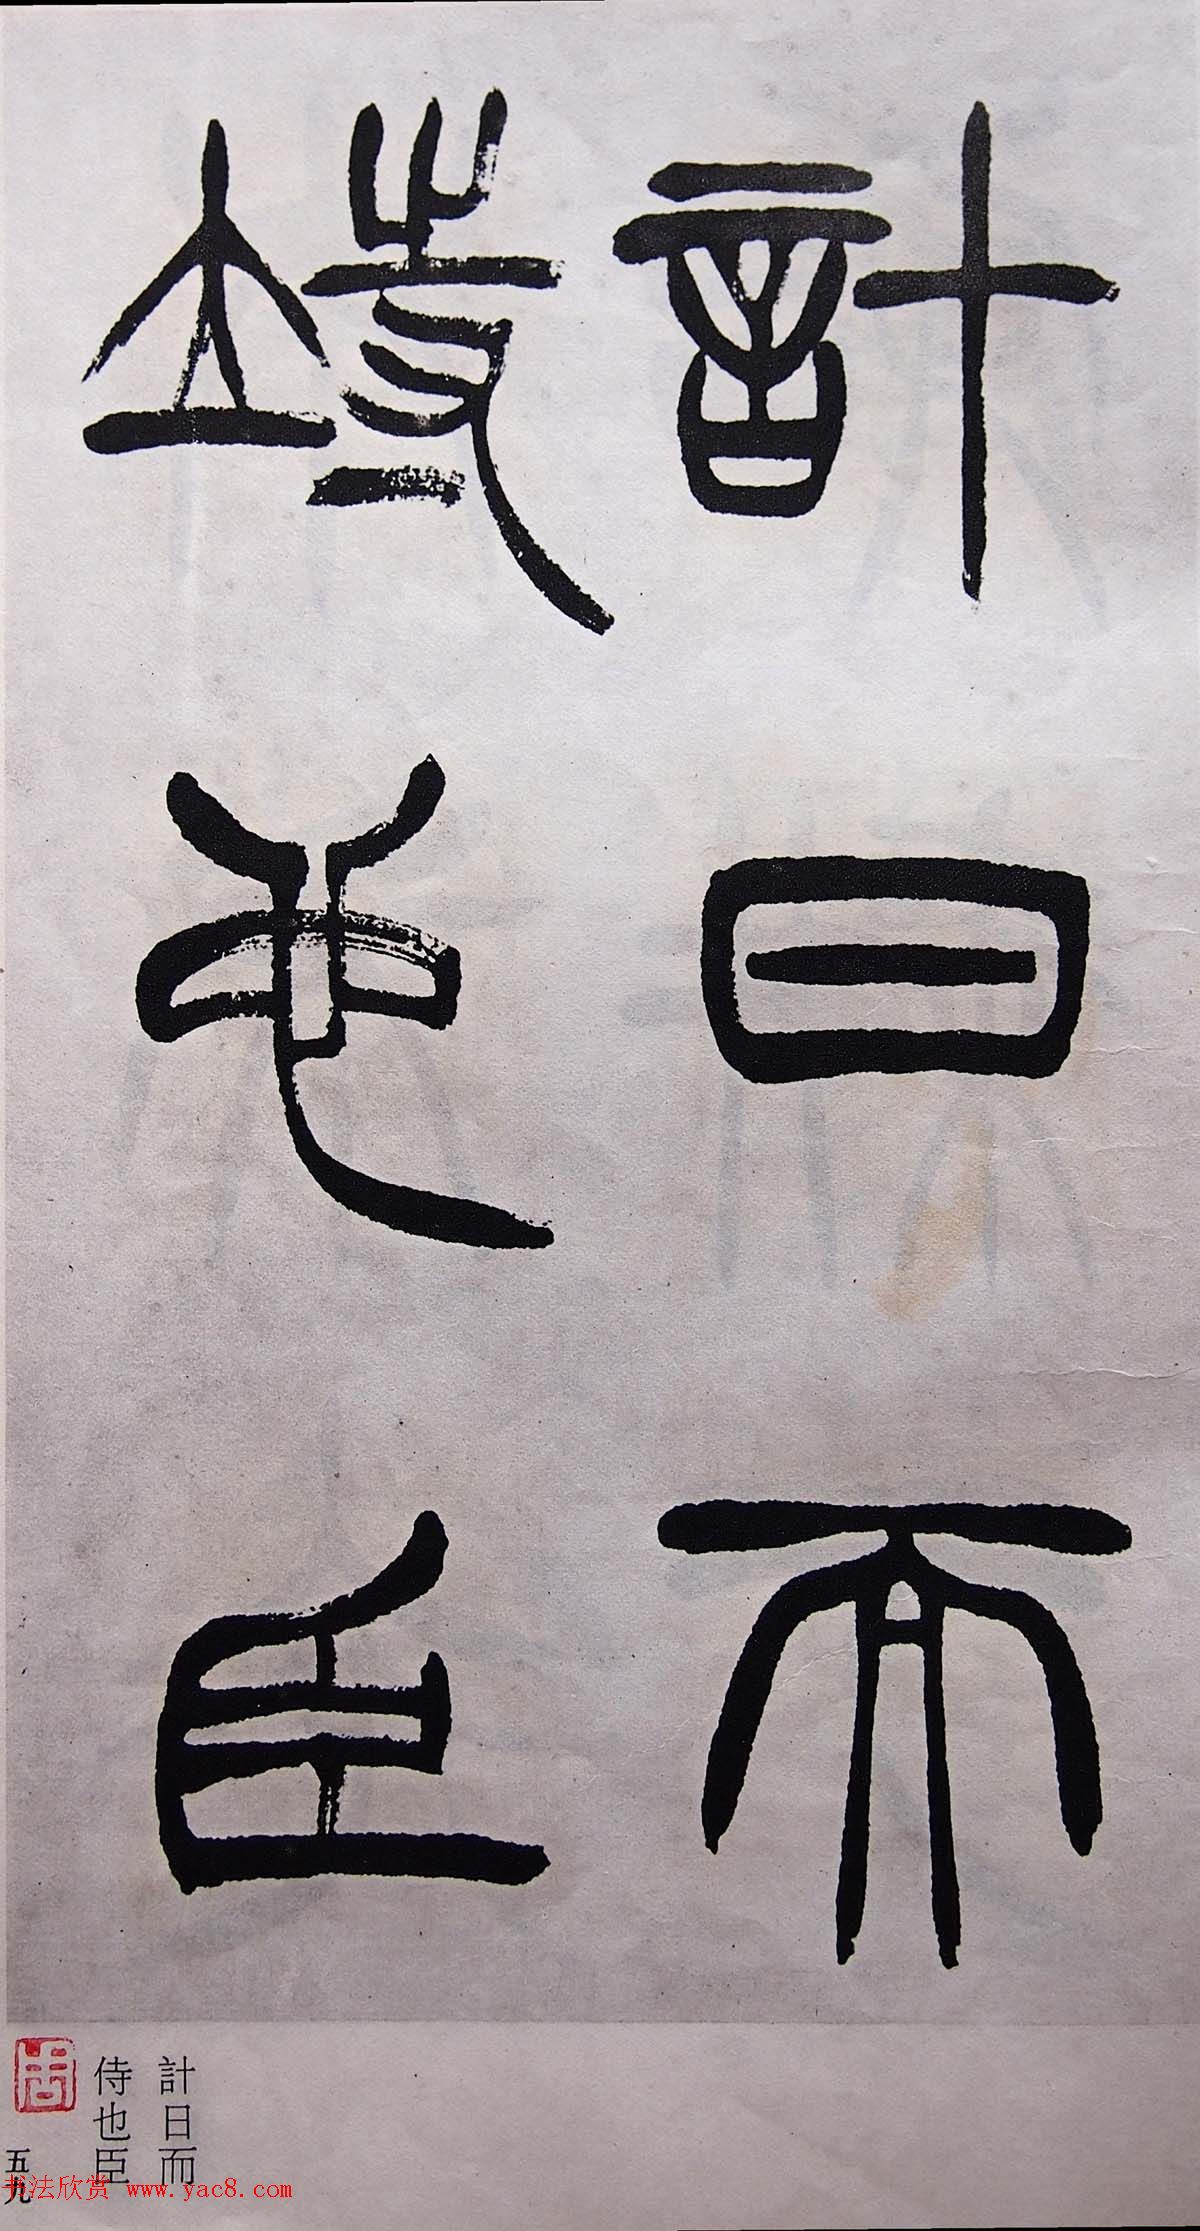 計日而
侍也臣
計日而
侍也臣
五九
书法欣赏 www.yac8.com